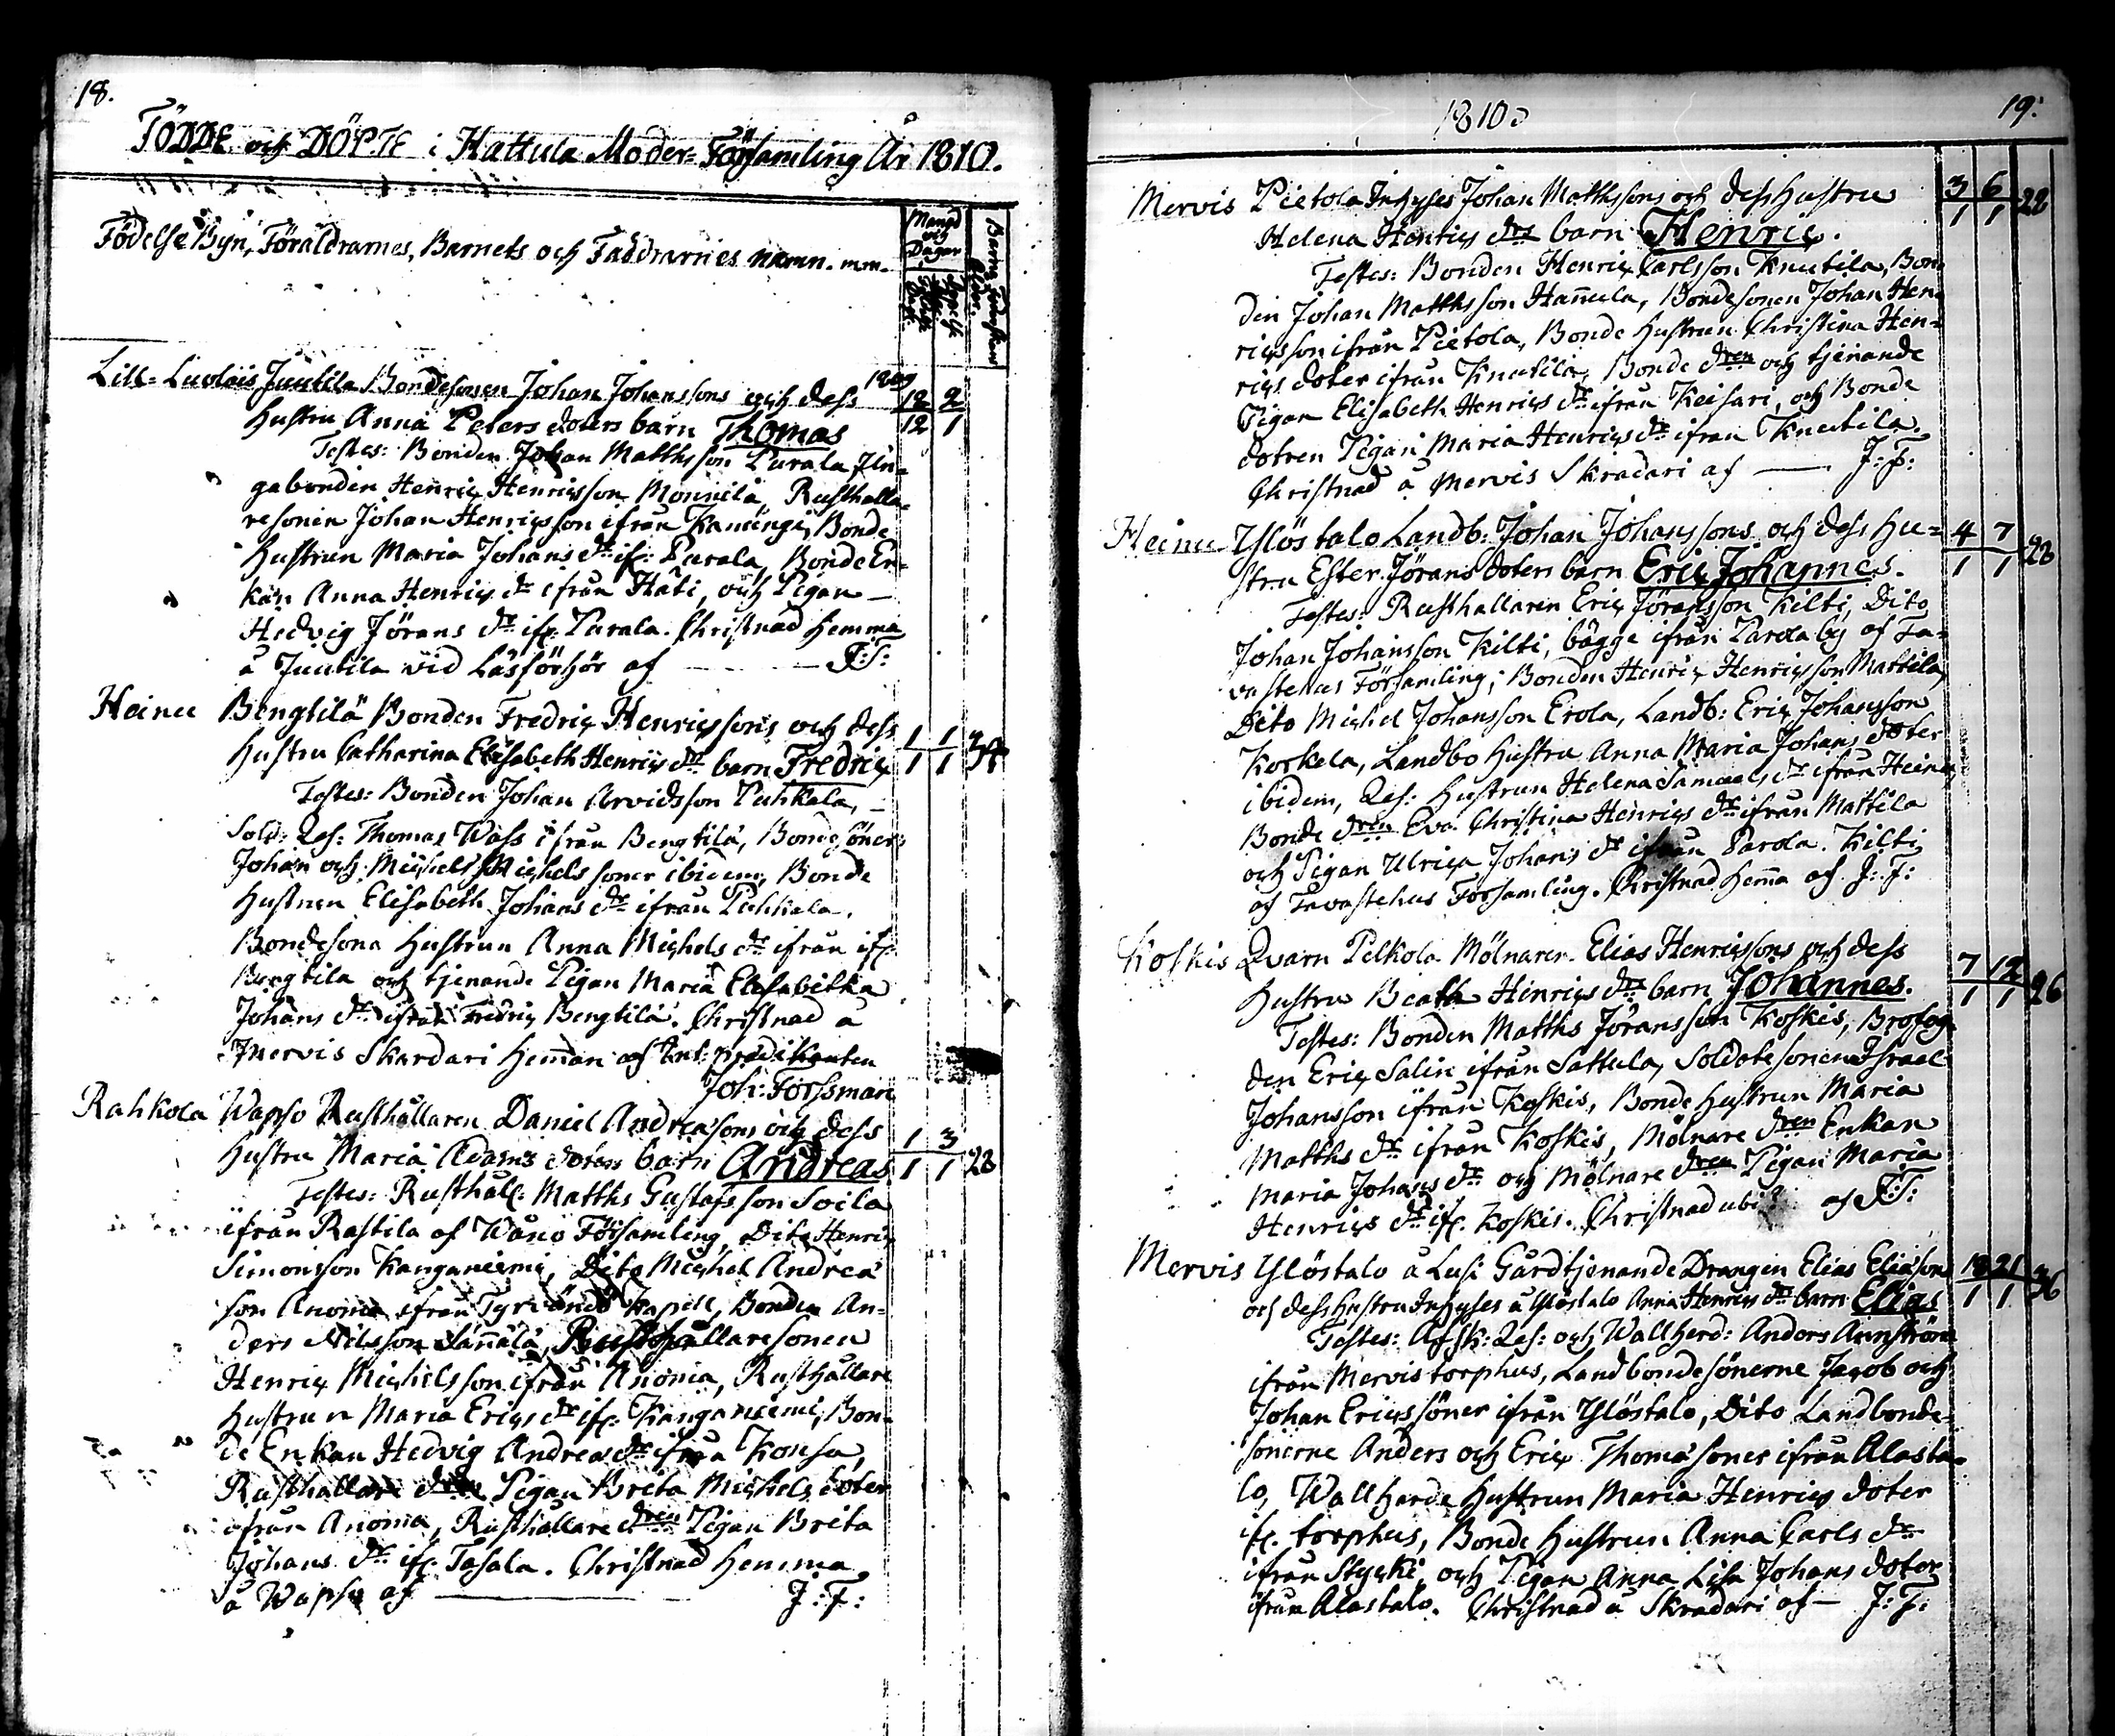 18.
FÖDDE och DÖPTE i Hattula Moder-Församling År 1810.
Födelse Byn, Föräldrarnes, Barnets och Faddrarnes namn. mm.
Månad och Dagar
Lill-Luolais Juutila Bondesonen Johan Johanssons och dess 1809 12 2
hustru Anna Peters doters barn Thomas 12 1
Testes: Bonden Johan Mattsson Parala
gabonden Henric Henricsson Monnila, Rusthålla-
resonen Johan Henricsson ifrån Kanungi, Bonde
Hustrun Maria Johans dr if: Parala, Bonde En-
kan Anna Henrics dr ifrån Hati, och Pigan
Hedvig Jörans dr if: Parala. Christnad hemma
å Juutila vid Läsförhör af J:F:
Heinu Bengtilä Bonden Fredric Henricssons och dess 1 1
hustru Catharina Elisabeth Henrics drs barn Fredric 1 1 34
Testes: Bonden Johan Arvidsson Puhkala,
Sold: Res: Thomas Wass ifrån Bengtilä, Bondesöner
Johan och Michel Michels söner ibidem, Bonde
Hustrun Elisabeth Johans dr ifrån Puhkala,
Bondesona Hustrun Anna Michels dr ifrån if:
Bengtila och tjenande Pigan Maria Elisabetha
Johans dr ifrån Fredric Bengtilä. Christnad å
Mervis Skardari hemman af Ext: predikanten
Joh: Forssman
Rahkola Wapso Rusthållaren Daniel Andreasons och dess 1 3
hustru Maria Adams doters barn Andreas 1 1 28
Testes: Rusthåll: Matths Gustafsson Soila
ifrån Rastila af Wånå Församling, Dito Henric
Simonsson Kanganiemi, Dito Michel Andrea
son Anomia ifrån Tyrvändö Kapell, Bonden An-
ders Nilsson Sannala, Rusthållaresonen
Henric Michelsson ifrån Anomia, Rusthållare
hustrun Maria Erics dr if: Kanganiemi, Bon-
de Enkan Hedvig Andreæ dr ifrån Konsa,
Rusthållare dren Pigan Brita Michels doter
ifrån Anomia, Rusthållare dren Pigan Brita
Johans dr if: Tasala. Christnad hemma
å Wapso af J:F:
1810.
19.
Mervis Pietola Inhyses Johan Mattssons och dess hustru 3 6
Helena Henrics drs barn Henric. 1 1 28
Testes: Bonden Henric Carlsson Knutila, Bon-
den Johan Mattsson Hannula, Bondesonen Johan Hen-
ricsson ifrån Pietola, Bonde hustrun Christina Hen-
rics doter ifrån Knutila, Bonde dren och tjenande
Pigan Elisabeth Henrics dr ifrån Keisari, och Bonde
dotren Pigan Maria Henrics dr ifrån Knutila.
Christnad å Mervis Skradari af J:F:
Heinu Ylöstalo Landb: Johan Johanssons och dess hu- 4 7
stru Ester Jörans doters barn Eric Johannes. 1 1 28
Testes: Rusthållaren Eric Jöransson Kilti, Dito
Johan Johansson Kilti, bägge ifrån Parola by af Ta-
vastehus Församling; Bonden Henric Henricsson Mattila,
Dito Michel Johansson Erola, Landb: Eric Johansson
Korkela, Landbo hustru Anna Maria Johans doter
ibidem, Res: hustrun Helena Samuels dr ifrån Heinu,
Bonde dren Eva Christina Henrics dr ifrån Mattila
och Pigan Ulrica Johans dr ifrån Parola Kilti
af Tavastehus Församling. Christnad hemma af J:F:
Koskis Qvarn Pelkola Mölnaren Elias Henricssons och dess 7 12
hustru Beata Henrics drs barn Johannes. 1 1 26
Testes: Bonden Matths Jöransson Koskis, Brofog-
den Eric Salin ifrån Sattula, Soldatesonen Israel
Johansson ifrån Koskis, Bonde hustrun Maria
Matths dr ifrån Koskis, Mölnare dren Enkan
Maria Johans dr och Mölnare dren Pigan Maria
Henrics dr if: Koskis. Christnad ubi af J:F:
Mervis Ylöstalo å Lusi Gård tjenande Drängen Elias Eliæsons 18 21
och dess hustru Inhyses å Ylöstalo Anna Henrics drs barn Elias 1 1 36
Testes: Afsk: Res: och Wallherd: Anders Annström
ifrån Mervis torphus, Landbondesönerne Jacob och
Johan Erics söner ifrån Ylöstalo, Dito Landbonde-
sönerne Anders och Eric Thomæ söner ifrån Alasta-
lo, Wallherde hustrun Maria Henrics doter
if: torphus, Bonde hustrun Anna Carls dr
ifrån Stycki, och Pigan Anna Lisa Johans doter
ifrån Alastalo. Christnad å Skradari af J:F: